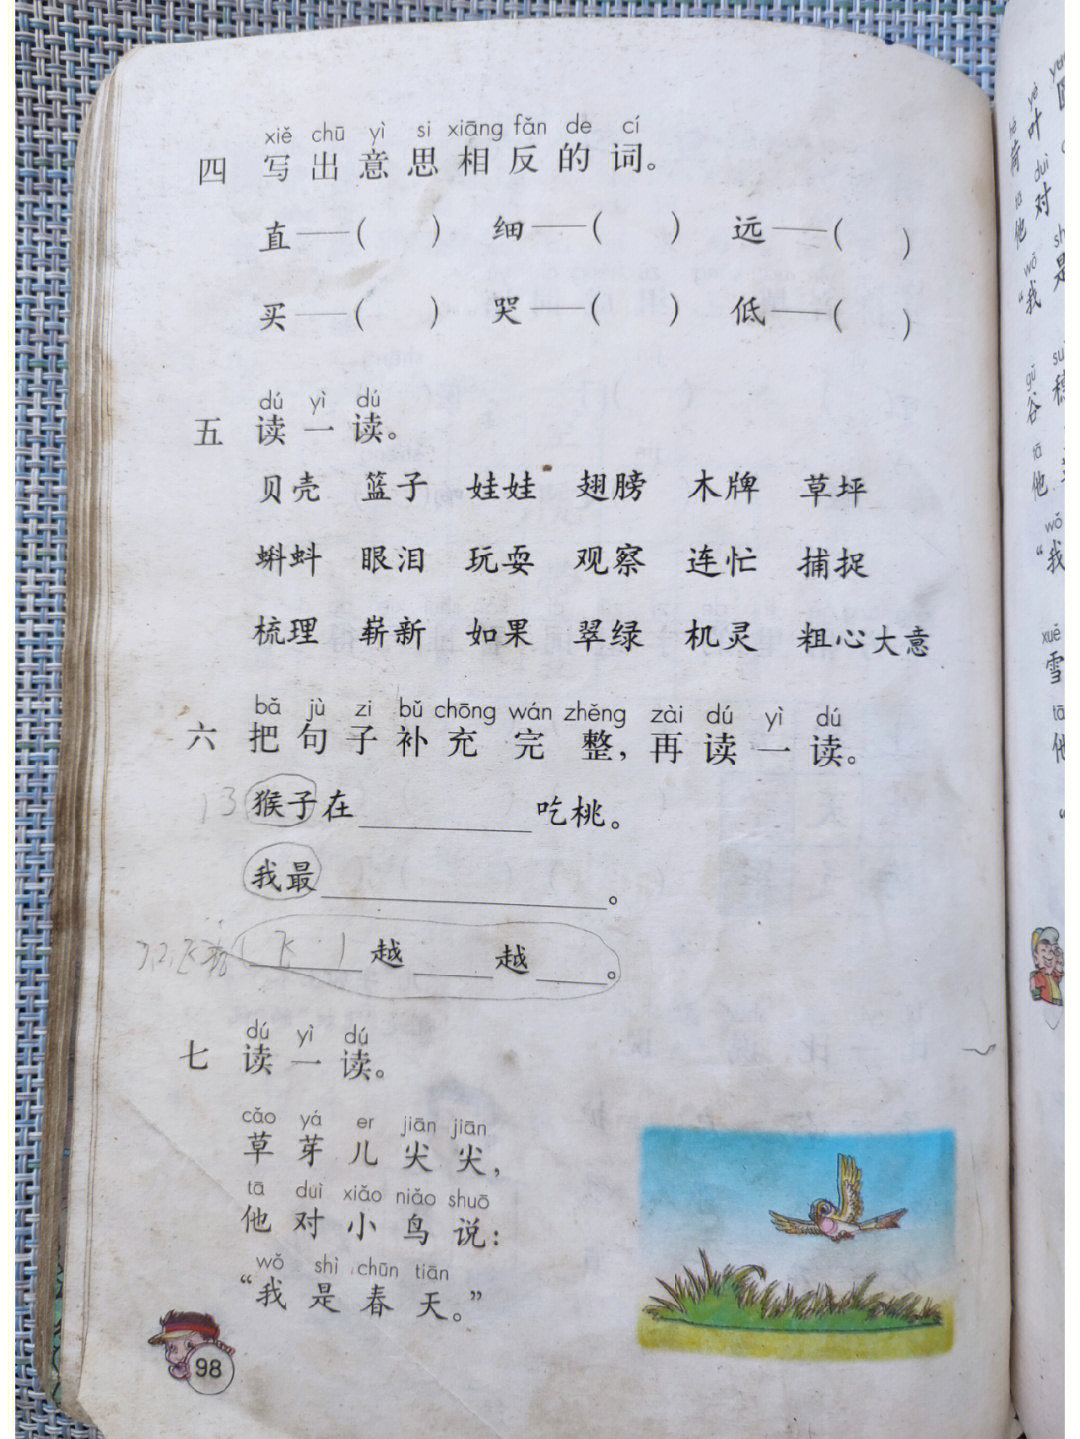 xiě chū yì si xiāng fǎn de cí
四 写出意思相反的词。
直——( ) 细——( ) 远——( )
买——( ) 哭——( ) 低——( )
dú yì dú
五 读一读。
贝壳 篮子 娃娃 翅膀 木牌 草坪
蝌蚪 眼泪 玩耍 观察 连忙 捕捉
梳理 崭新 如果 翠绿 机灵 粗心大意
bǎ jù zi bǔ chōng wán zhěng zài dú yì dú
六 把句子补充完整，再读一读。
13 猴子在____吃桃。
我最____。
飞 越____越____。
dú yì dú
七 读一读。
cǎo yá er jiān jiān
草芽儿尖尖，
tā duì xiǎo niǎo shuō
他对小鸟说：
wǒ shì chūn tiān
“我是春天。”
98
yè
hé
荷叶
duì
tā
他对
shì
wǒ
“我是
gǔ suì
谷穗
tā
他
wǒ
“我
xuě
雪
tā
他